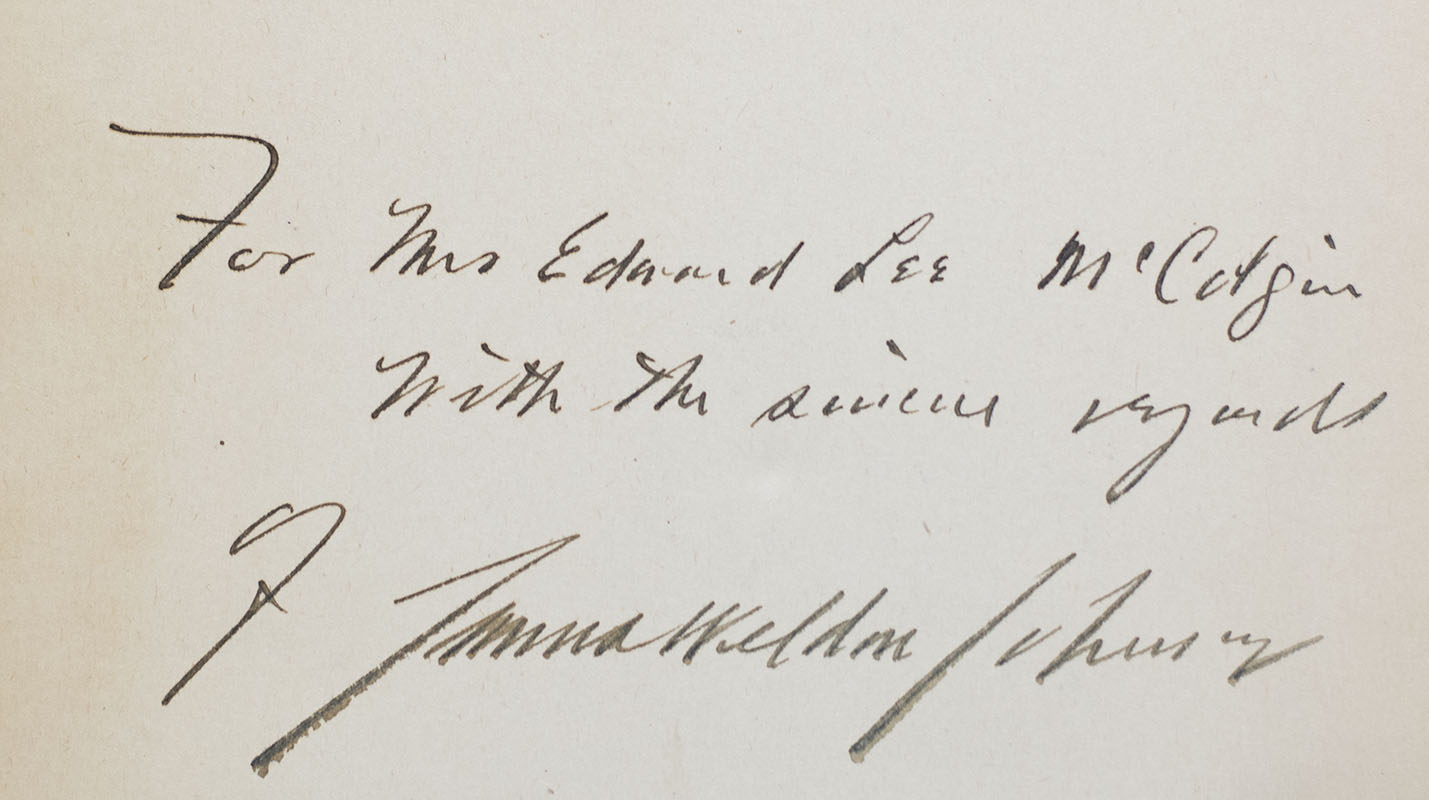 For Mrs Edward Lee McColgin
With the sincere regards
of James Weldon Johnson